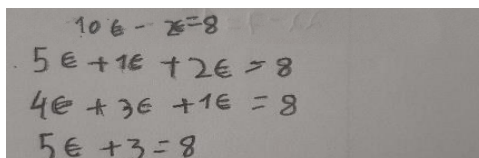 10 € - 2€=8
5 € + 1€ + 2€ = 8
4€ + 3€ + 1€ = 8
5€ + 3 = 8